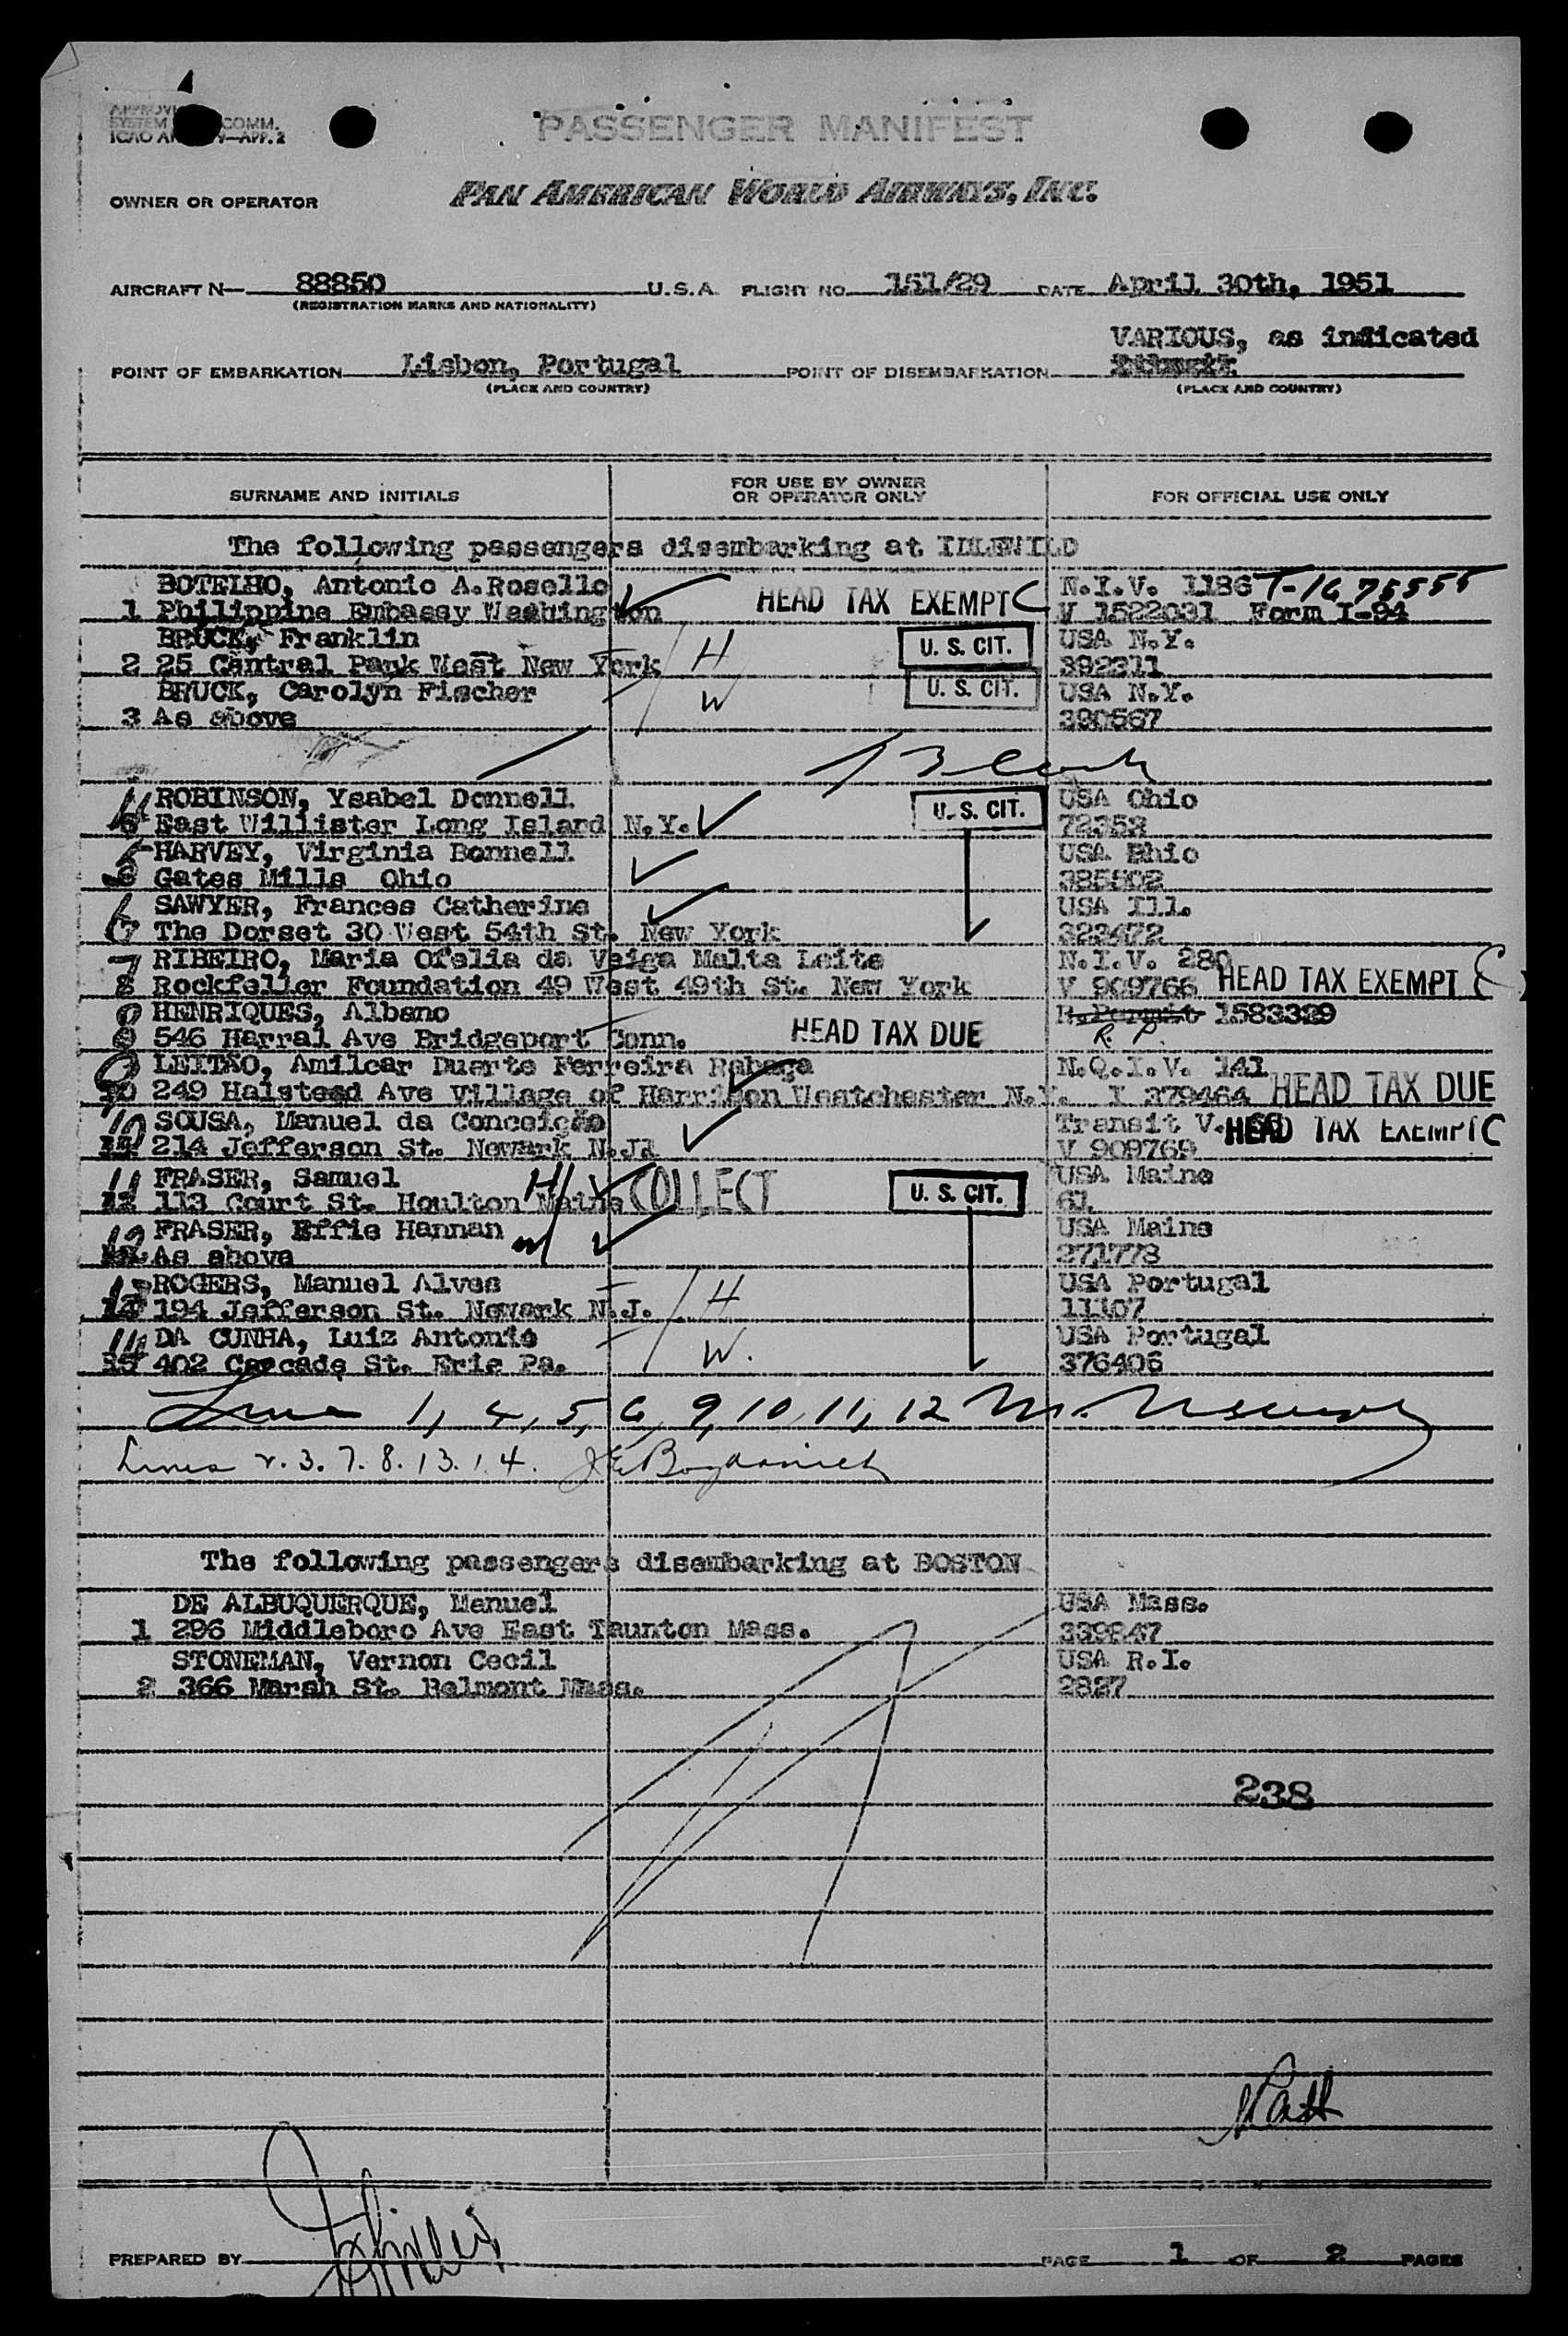 PASSENGER MANIFEST
COMM.
ICAO —APP. 2
OWNER OR OPERATOR PAN AMERICAN WORLD AIRWAYS, INC.
AIRCRAFT N— 88850 U.S.A. FLIGHT NO. 151/29 DATE April 30th, 1951
(REGISTRATION MARKS AND NATIONALITY)
VARIOUS, as indicated
POINT OF EMBARKATION Lisbon, Portugal POINT OF DISEMBARKATION
(PLACE AND COUNTRY) (PLACE AND COUNTRY)
SURNAME AND INITIALS FOR USE BY OWNER OR OPERATOR ONLY FOR OFFICIAL USE ONLY
The following passengers disembarking at IDLEWILD
BOTELHO, Antonio A.Rosello HEAD TAX EXEMPT C N.I.V. 1186 T-1675555
1 Philippine Embassy Washington V 1522031 Form I-94
BRUCK, Franklin H U. S. CIT. USA N.Y.
2 25 Central Park West New York 392311
BRUCK, Carolyn Fischer W U. S. CIT. USA N.Y.
3 As above 390567
4 ROBINSON, Ysabel Donnell U. S. CIT. USA Ohio
East Willister Long Island N.Y. 72353
5 HARVEY, Virginia Bonnell USA Ohio
Gates Mills Ohio 385502
6 SAWYER, Frances Catherine USA Ill.
The Dorset 30 West 54th St. New York 323472
7 RIBEIRO, Maria Ofelia da Veiga Malta Leite N.I.V. 280
8 Rockfeller Foundation 49 West 49th St. New York V 909766 HEAD TAX EXEMPT C
8 HENRIQUES, Albano R.Permit 1583329
9 546 Harral Ave Bridgeport Conn. HEAD TAX DUE R. P.
9 LEITÃO, Amilcar Duarte Ferreira Rabaça N.Q.I.V. 141
10 249 Halstead Ave Village of Harrison Westchester N.Y. I 379464 HEAD TAX DUE
10 SOUSA, Manuel da Conceição Transit V. HEAD TAX EXEMPT C
11 214 Jefferson St. Newark N.J. V 909769
11 FRASER, Samuel H USA Maine
12 113 Court St. Houlton Maine COLLECT U. S. CIT. 61
12 FRASER, Effie Hannan W USA Maine
As above 271778
13 ROGERS, Manuel Alves H USA Portugal
14 194 Jefferson St. Newark N.J. 11107
14 DA CUNHA, Luiz Antonio W. USA Portugal
15 402 Cascade St. Erie Pa. 376406
1, 4, 5, 6, 9, 10, 11, 12 M.
Lines 2. 3. 7. 8. 13. 14. J E Bogdanich
The following passengers disembarking at BOSTON
DE ALBUQUERQUE, Manuel USA Mass.
1 296 Middleboro Ave East Taunton Mass. 339847
STONEMAN, Vernon Cecil USA R.I.
2 366 Marsh St. Belmont Mass. 2827
238
PREPARED BY PAGE 1 OF 2 PAGES